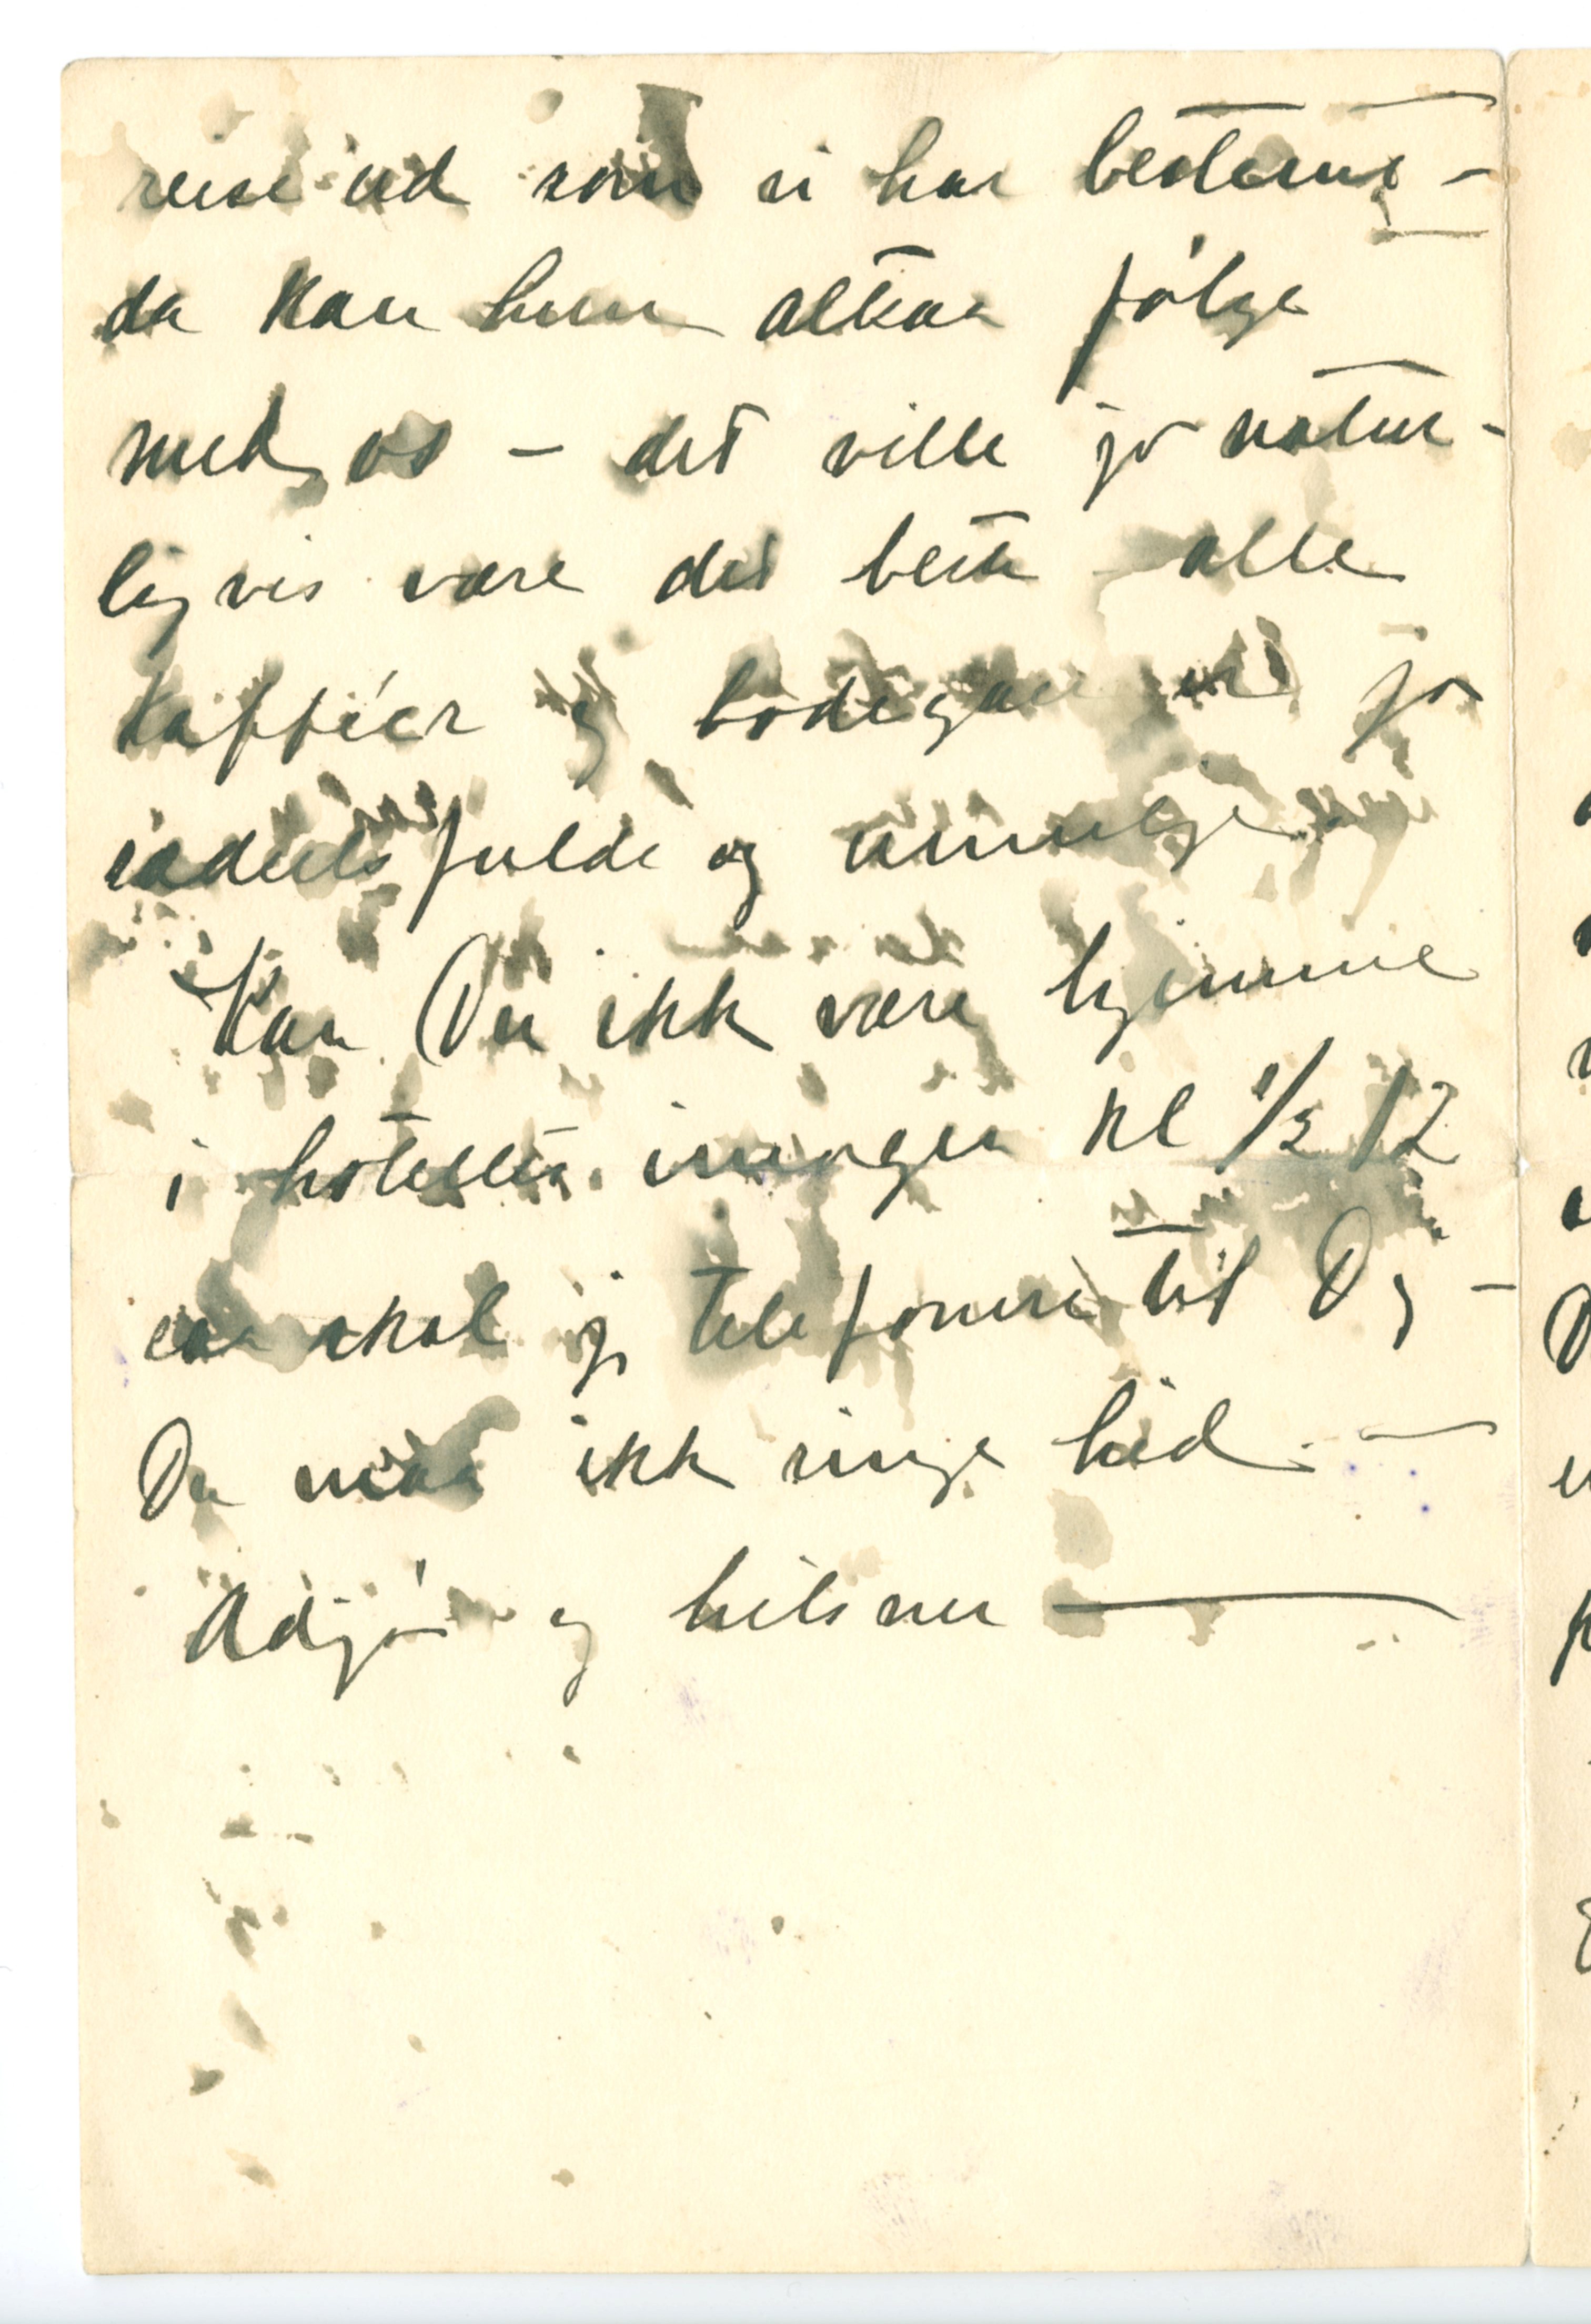 reise ud som vi har bestemt –
da kan hun altsaa følge
med os – det ville jo natur-
ligvis være det beste alle
kafféer og bodegaer er jo
rædselsfulde og umulige
Kan Du ikke være hjemme
i hotellet imorgen kl 1/2 12
saa skal jeg telefonere til Dig –
Du maa ikke ringe hid. –
Adjø og hilsner —